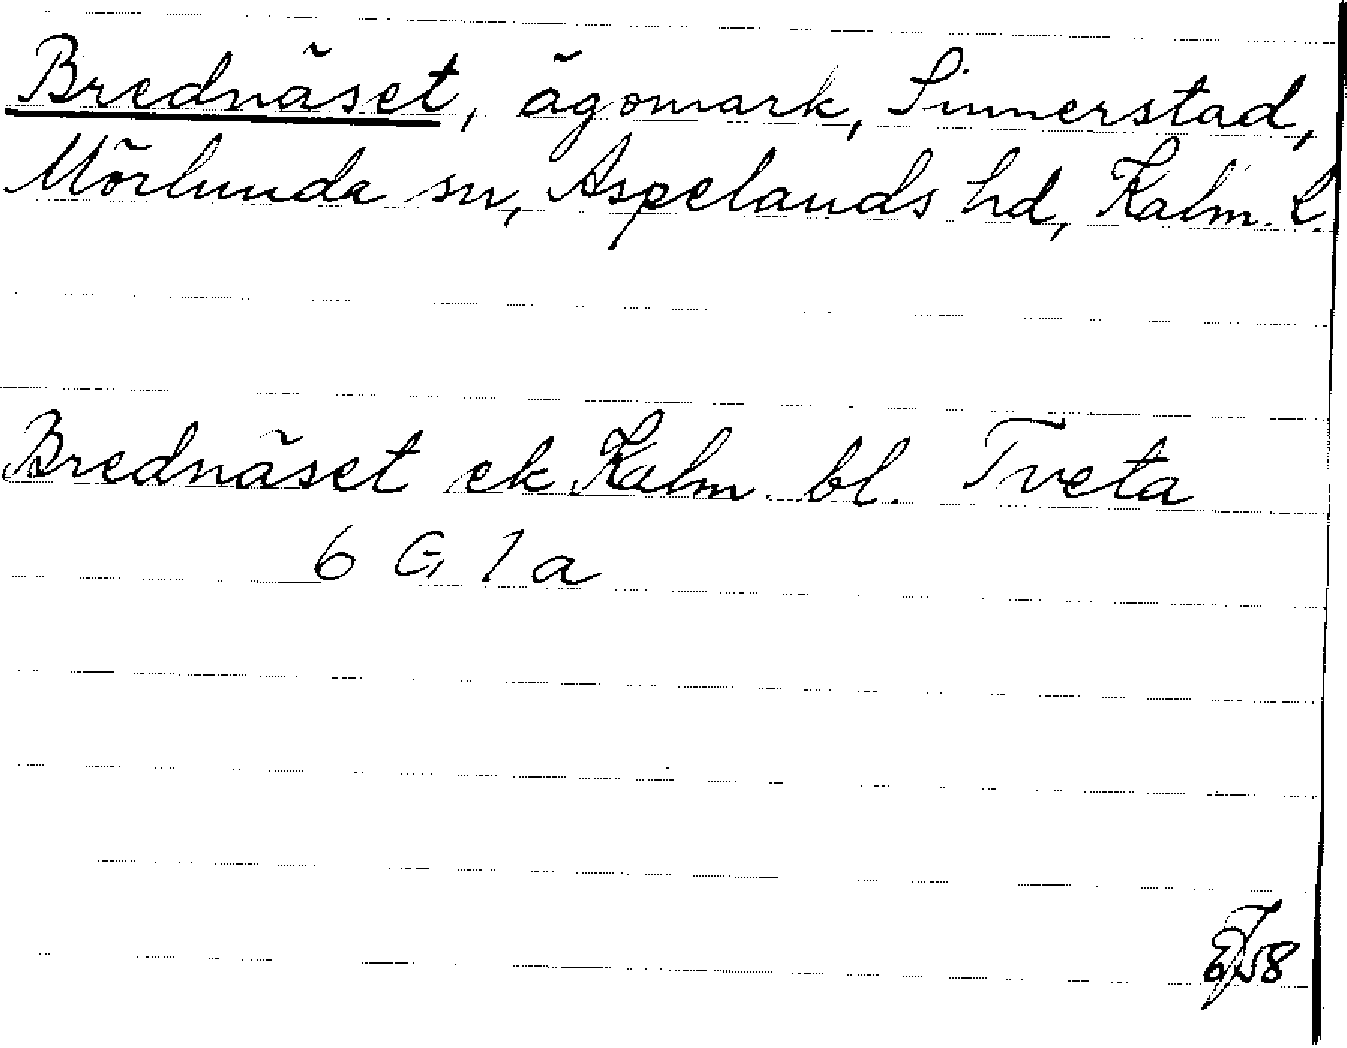 Brednäset, ägomark, Sinnerstad,
Mörlunda sn, Aspelands hd, Kalm. l.
Brednäset ek Kalm. bl. Tveta
6 G 1 a